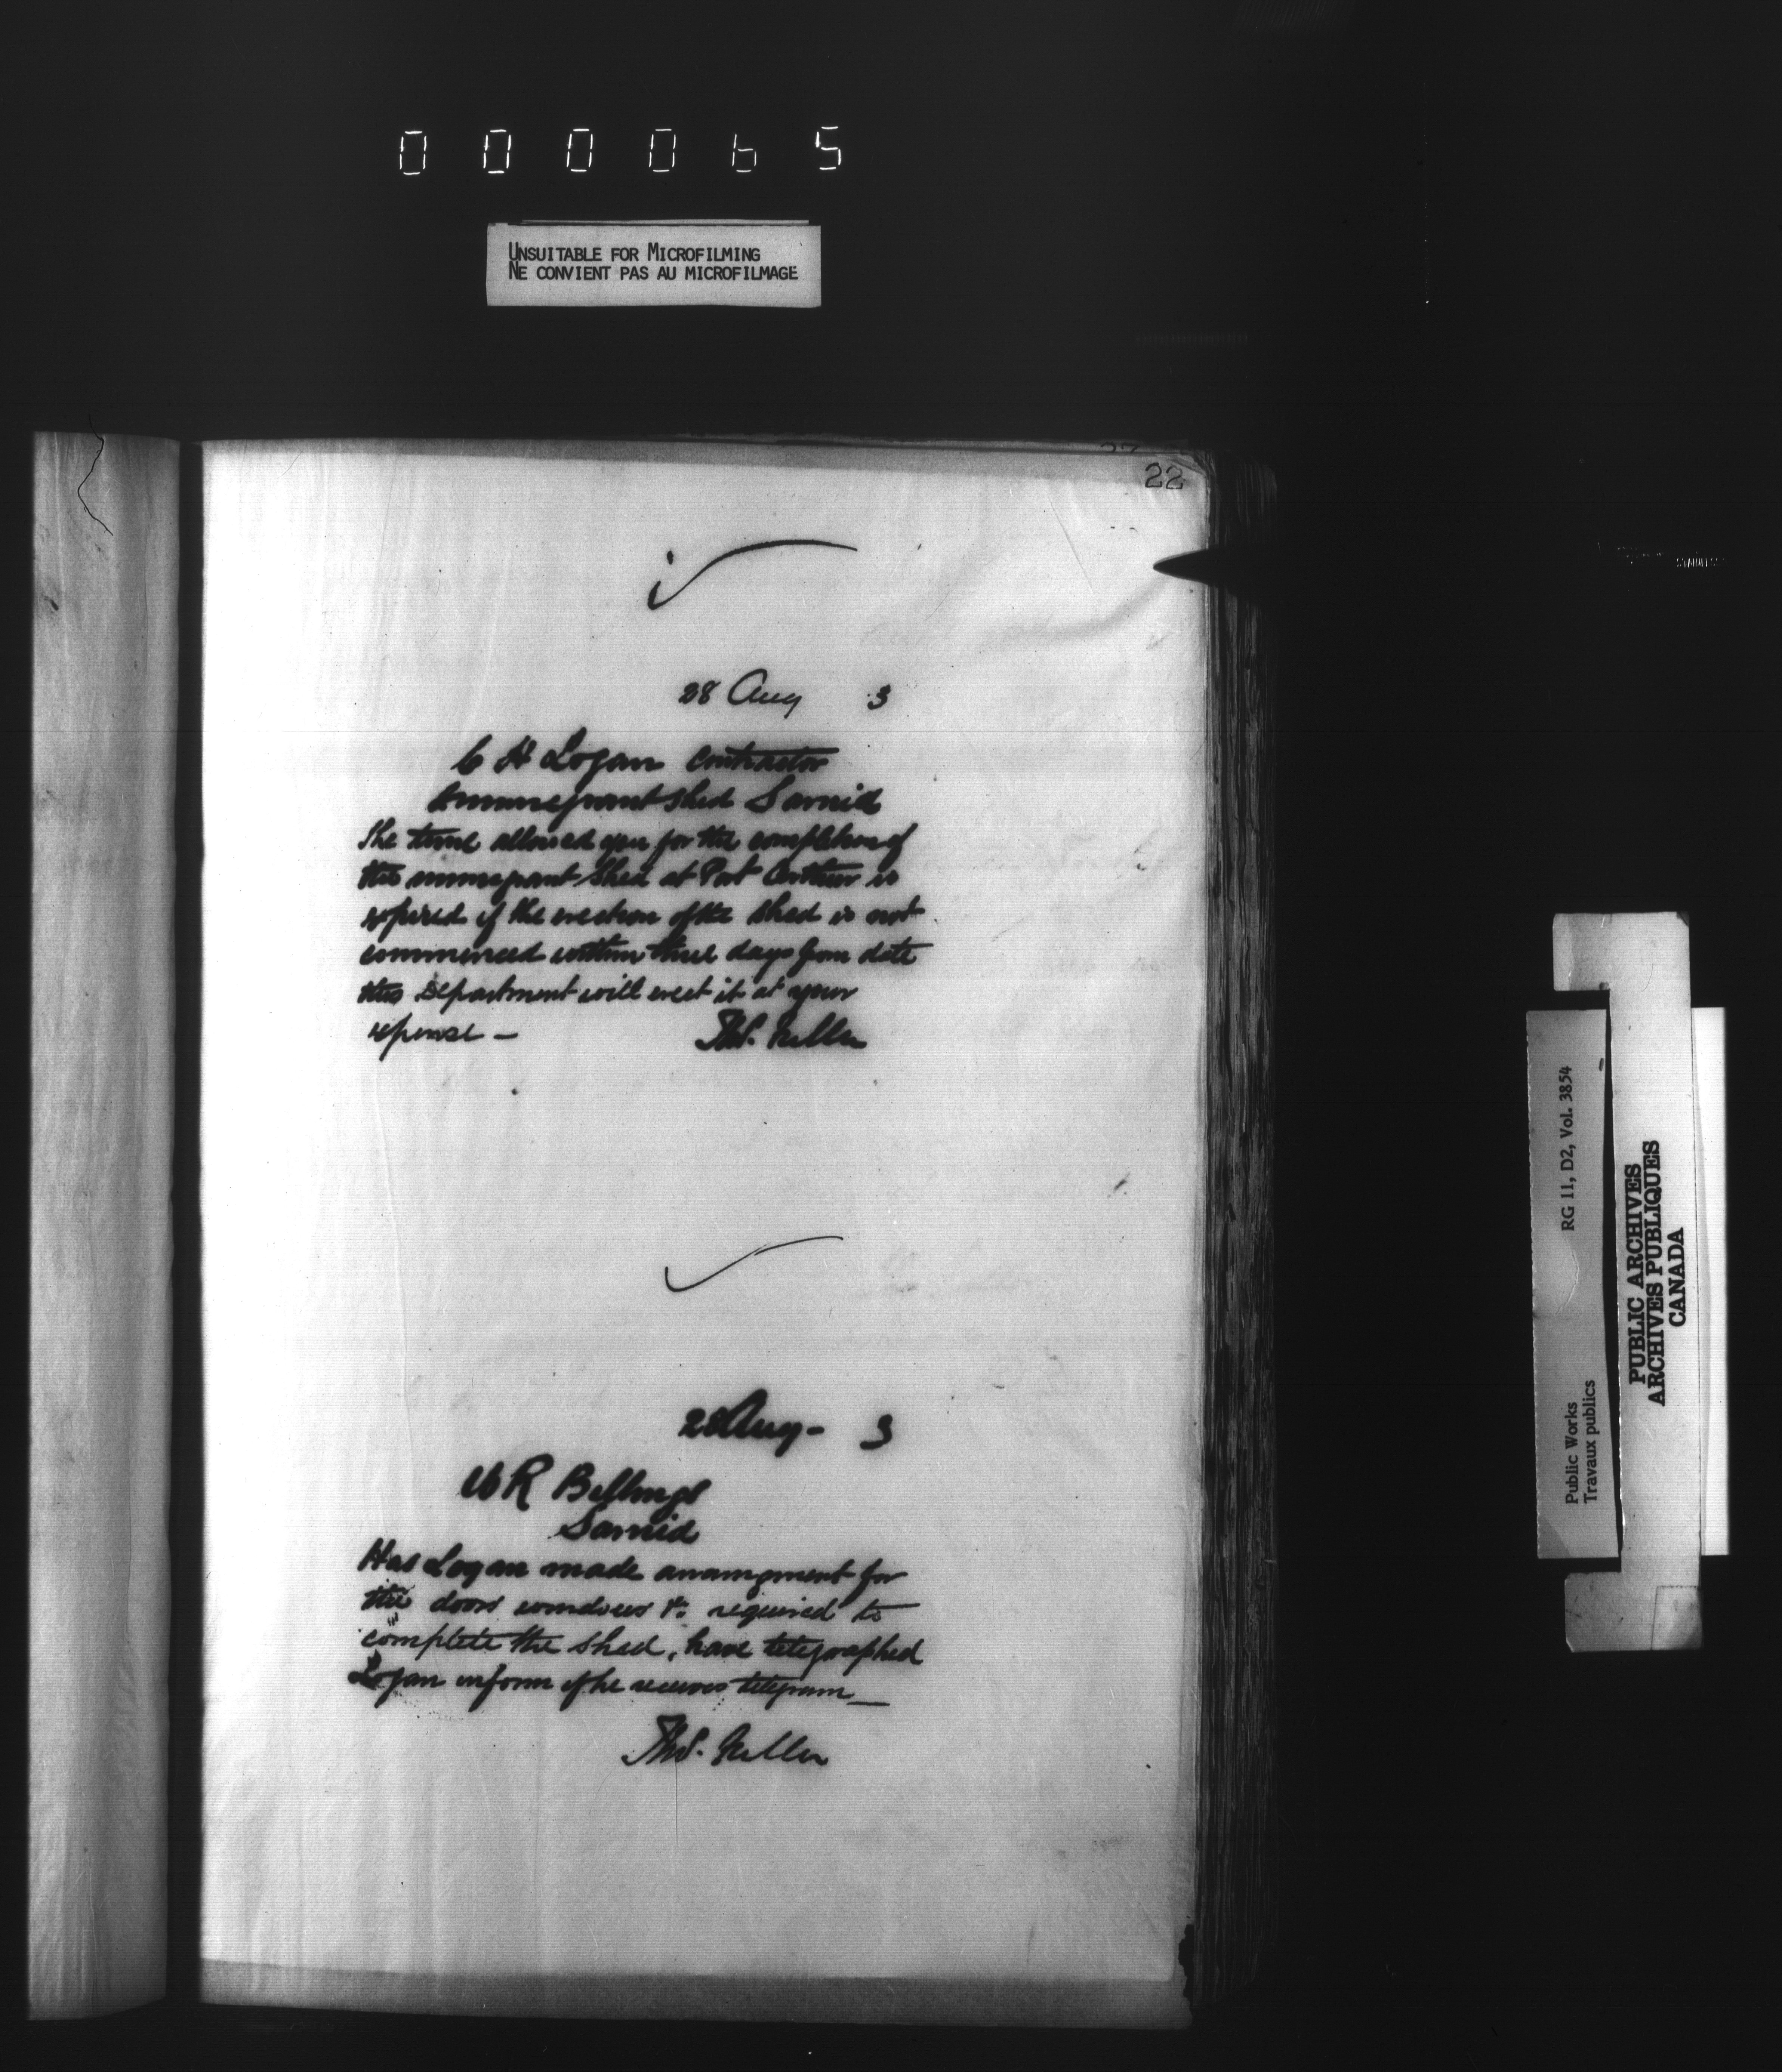 000065
UNSUITABLE FOR MICROFILMING
NE CONVIENT PAS AU MICROFILMAGE
22
28 Aug 3
C H Logan Contractor
Immigrant shed Sarnia
The time allowed you for the completion of
the immigrant shed at Port Arthur is
expired if the erection of the shed is not
commenced within three days from date
this Department will erect it at your
expense —
Thos. Fuller
28 Aug - 3
W R Billings
Sarnia
Has Logan made arrangment for
the doors windows &c required to
complete the shed, have telegraphed
Logan inform if he receives telegram —
Thos. Fuller
Public Works
Travaux publics
RG 11, D2, Vol. 3854
PUBLIC ARCHIVES
ARCHIVES PUBLIQUES
CANADA